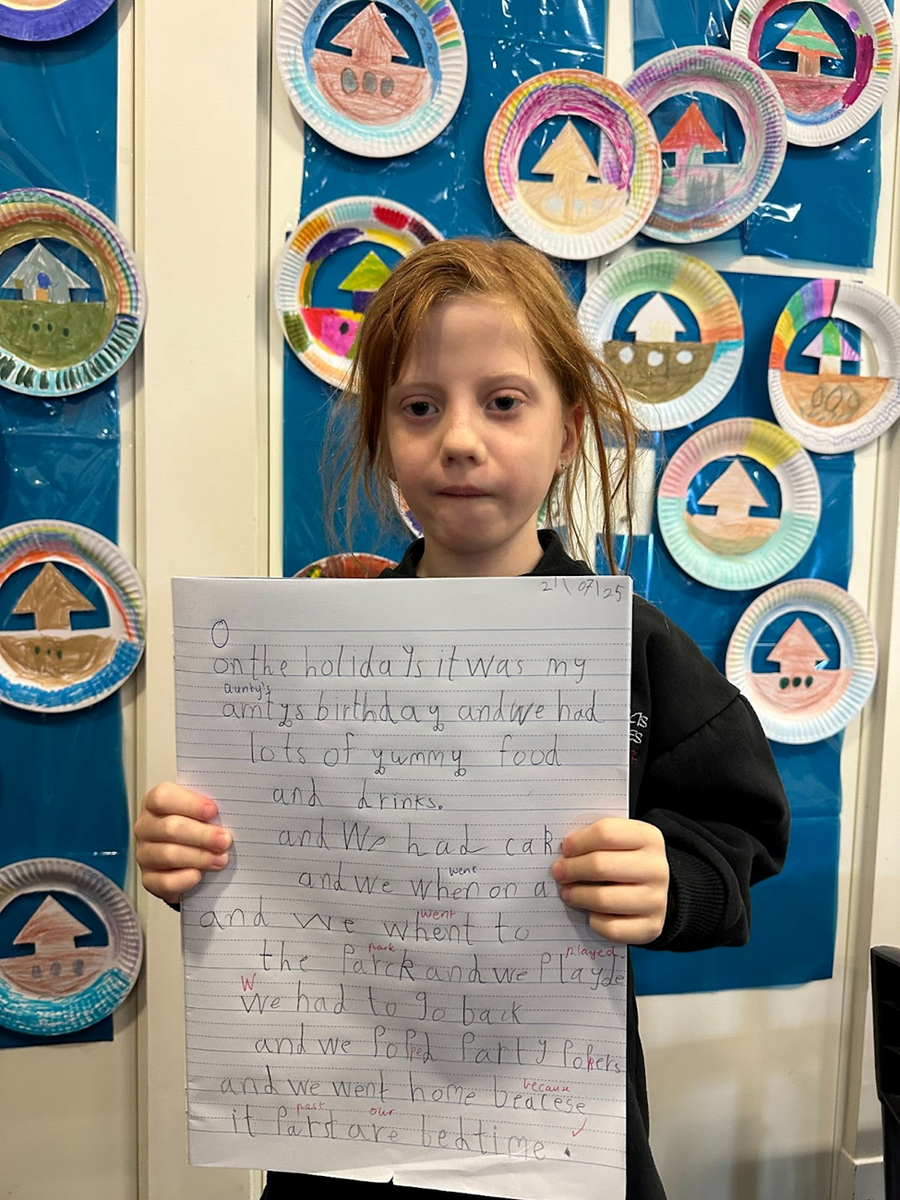 21/07/25
O
on the holidays it was my
aunty's
amtys birthday and we had
lots of yummy food
and drinks.
and We had cak
went
and we when on a
went
and we whent to
park played
the Parck and we Playde
W
we had to go back
and we Popped Party Poppers
and we went home beacese
because
past our
it Parst are bedtime.